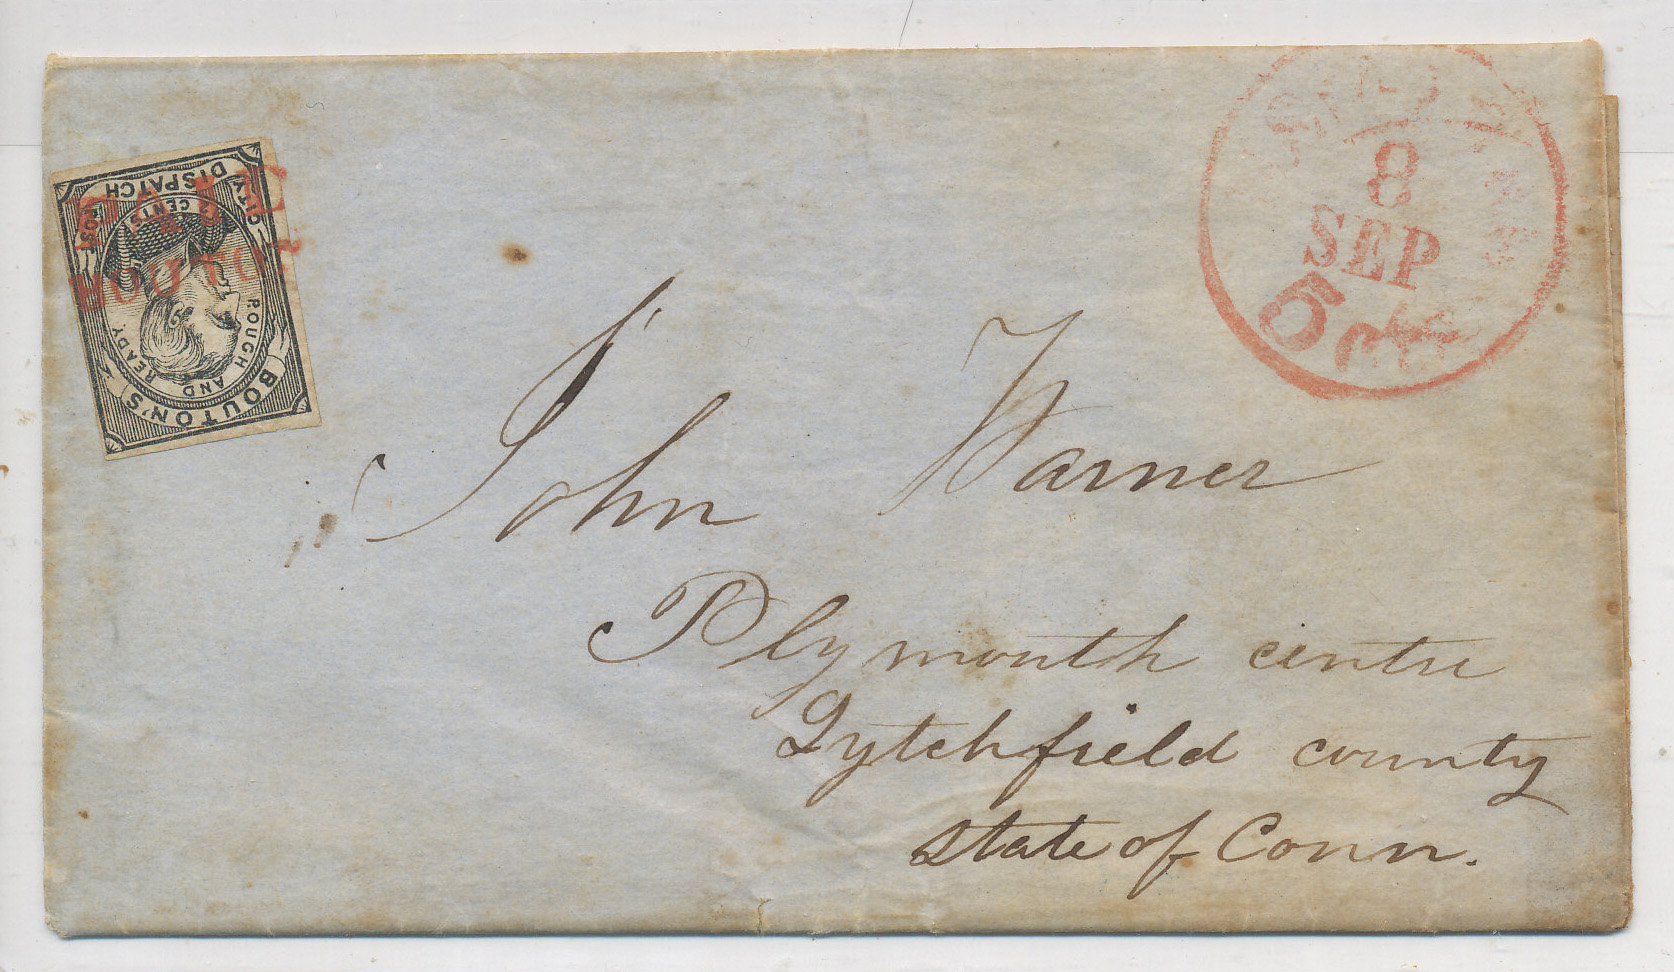 BOUTON'S
CITY DISPATCH POST
2 CENTS
ROUGH AND READY
PAID
BOUTON
8
SEP
5 cts
John Warner
Plymouth centre
Lytchfield county
state of Conn.